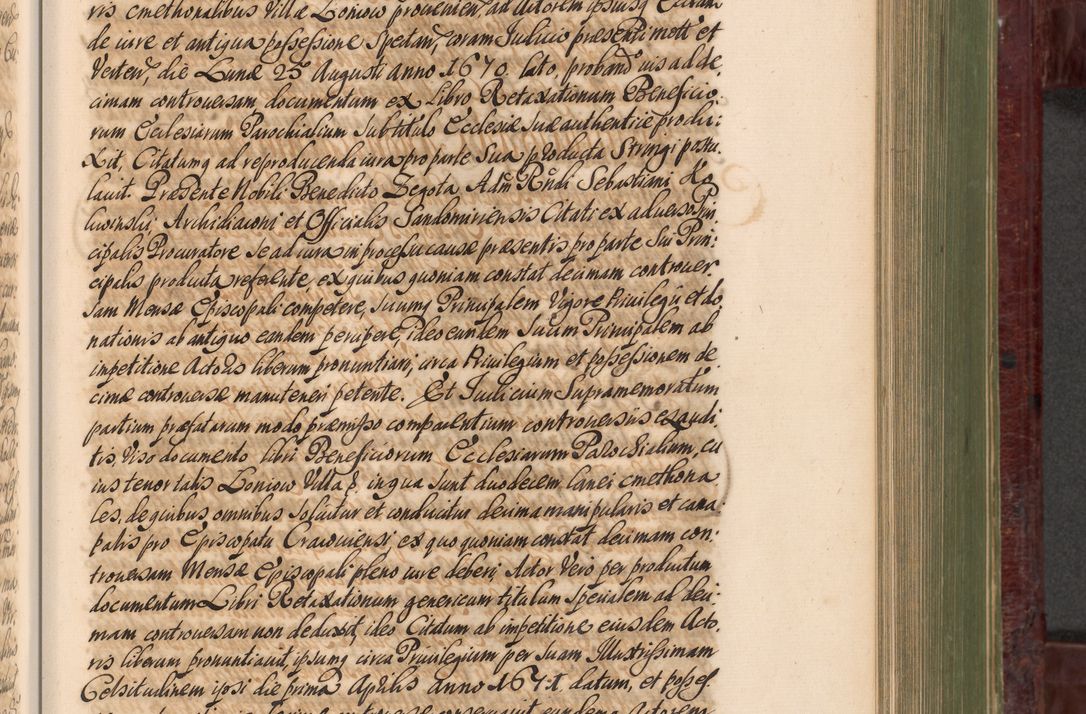 ris cmethonalibus Villæ Loniow provenien, ad Actorem ipsiusq Eccam
de iure et antiqua possessione Spectan, coram Judicio præsenti mott et
Verten, die Lunæ 25 Augusti Anno 1670. lato, proband ius ad de
cimam controversam, documentum ex Libro Retaxationum Beneficio:
rum Ecclesiarum Parochialium sub titulo Ecclesiæ suæ authentice produ:
xit, Citatumq ad reproducenda iura pro parte sua producta stringi postu
lavit. Præsente Nobili Benedicto Zegota Adm Rndi Sebastiani
Archidiaconi et Officialis Sandomiriensis Citati ex adverso Prin
cipalis Procuratore se ad iura in processu causæ præsentis pro parte sui Prin:
cipalis producta referente, ex quibus quoniam constat decimam controver
sam Mensæ Episcopali competere, suumq Principalem Vigore Privilegii et do
nationis ab antiquo eandem percipere, ideo eundem suum Principalem ab
impetitione Actoris liberum pronuntiari, circa Privilegium et possessionem de
cimæ controversæ manuteneri petente. Et Judicium Supramemoratum
partium præfatarum modo præmisso comparentium controversiis exaudi
tis, Viso documento libri Beneficiorum Ecclesiarum Parochialium, cu
ius tenor talis Loniow Villa p. in qua sunt duodecem lanei cmethona
les, de quibus omnibus solvitur et conducitur decima manipularis et cana
palis pro Episcopatu Cracoviensi, ex quo quoniam constat decimam con:
troversam Mensæ Episcopali pleno iure deberi, Actor Vero per productum
documentum Libri Retaxationum genericum titulum specialem ad deci
mam controversam non deduxit, ideo Citatum ab impetitione eiusdem Acto:
ris liberum pronuntiavit, ipsumq circa Privilegium per suam Illustrissimam
Celsitudinem ipsi die prima Aprilis Anno 1671. datum, et posses